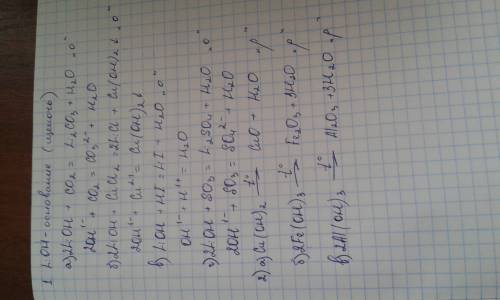 1 LiOH - основание (щелочь)
а) 2LiOH + CO₂ = Li₂CO₃ + H₂O „о“
2OH¹⁻ + CO₂ = CO₃²⁻ + H₂O
б) 2LiOH + CuCl₂ = 2LiCl + Cu(OH)₂↓ „о“
2OH¹⁻ + Cu²⁺ = Cu(OH)₂↓
в) LiOH + HI = LiI + H₂O „о“
OH¹⁻ + H¹⁺ = H₂O
г) 2LiOH + SO₃ = Li₂SO₄ + H₂O „о“
2OH¹⁻ + SO₃ = SO₄²⁻ + H₂O
2) а) Cu(OH)₂ =t°= CuO + H₂O „р“
б) 2Fe(OH)₃ =t°= Fe₂O₃ + 3H₂O „р“
в) 2Al(OH)₃ =t°= Al₂O₃ + 3H₂O „р“